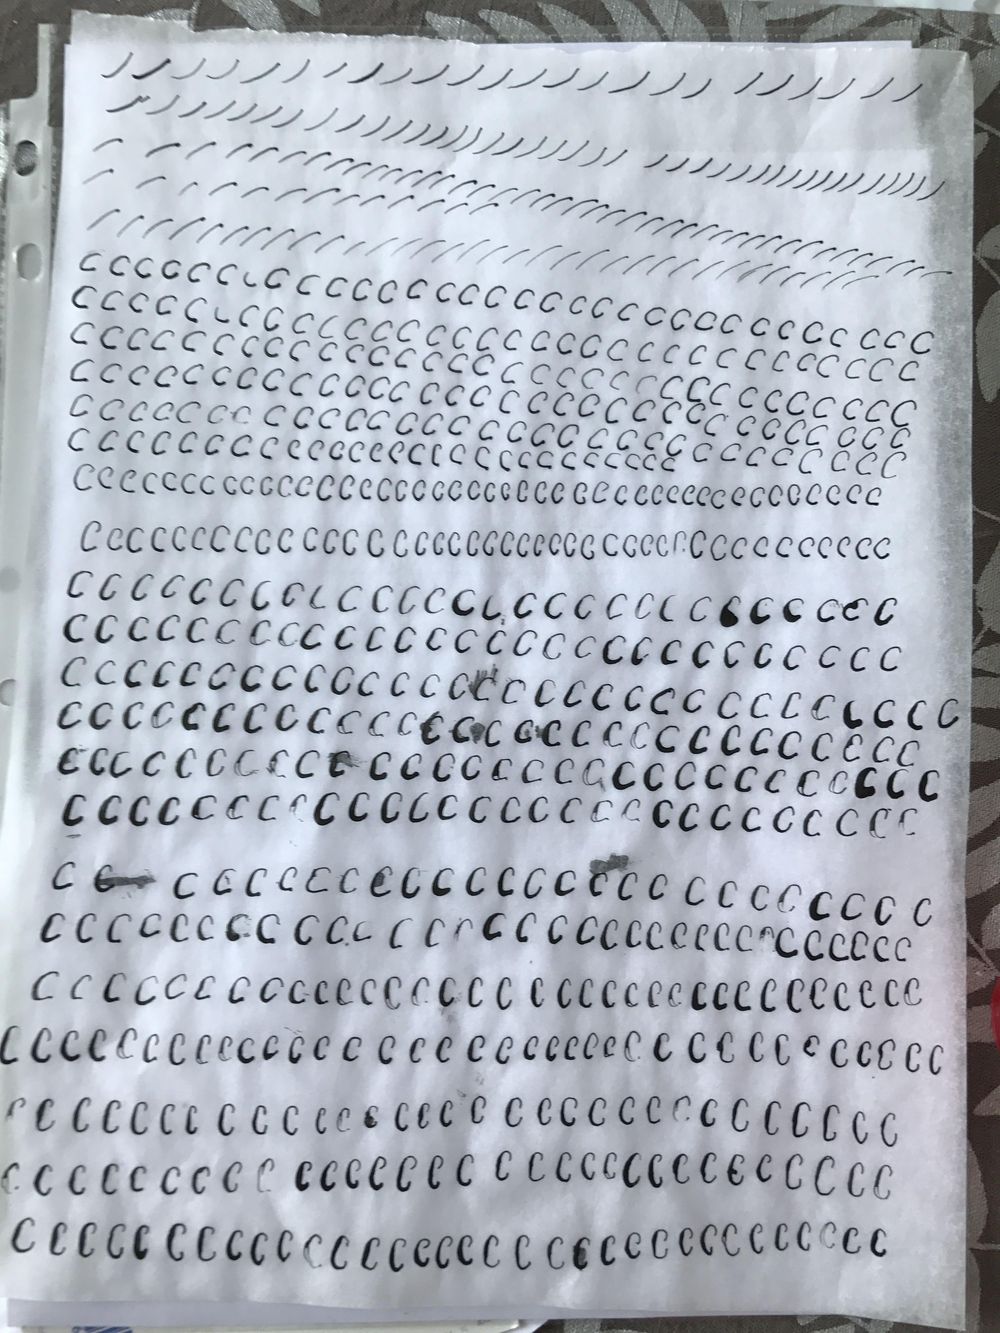 c c c c c c c c c c c c c c c c c c c c c c c c c c c c c c c
c c c c c c c c c c c c c c c c c c c c c c c c c c c c c c c
c c c c c c c c c c c c c c c c c c c c c c c c c c c c c c c
c c c c c c c c c c c c c c c c c c c c c c c c c c c c c c c
c c c c c c c c c c c c c c c c c c c c c c c c c c c c c c c
c c c c c c c c c c c c c c c c c c c c c c c c c c c c c c c c c
c c c c c c c c c c c c c c c c c c c c c c c c c c c c c c c c c c c c c c c
c c c c c c c c c c c c c c c c c c c c c c c c c c c c c c c c c c c c c c
c c c c c c c c c c c c c c c c c c c c c c c c c c c
c c c c c c c c c c c c c c c c c c c c c c c c c c c
c c c c c c c c c c c c c c c c c c c c c c c c c c c c c
c c c c c c c c c c c c c c c c c c c c c c c c c c c c
c c c c c c c c c c c c c c c c c c c c c c c c c c c c
c c c c c c c c c c c c c c c c c c c c c c c c c c c
c c c c c c c c c c c c c c c c c c c c c c c c c
c c c c c c c c c c c c c c c c c c c c c c c c c c c c c c
c c c c c c c c c c c c c c c c c c c c c c c c c c c c c c c c
c c c c c c c c c c c c c c c c c c c c c c c c c c c c c c c c c
c c c c c c c c c c c c c c c c c c c c c c c c c c c c
c c c c c c c c c c c c c c c c c c c c c c c c c c c c
c c c c c c c c c c c c c c c c c c c c c c c c c c c c c c